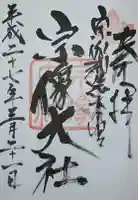 奉拝
宗像大社
平成二十七年三月二十一日